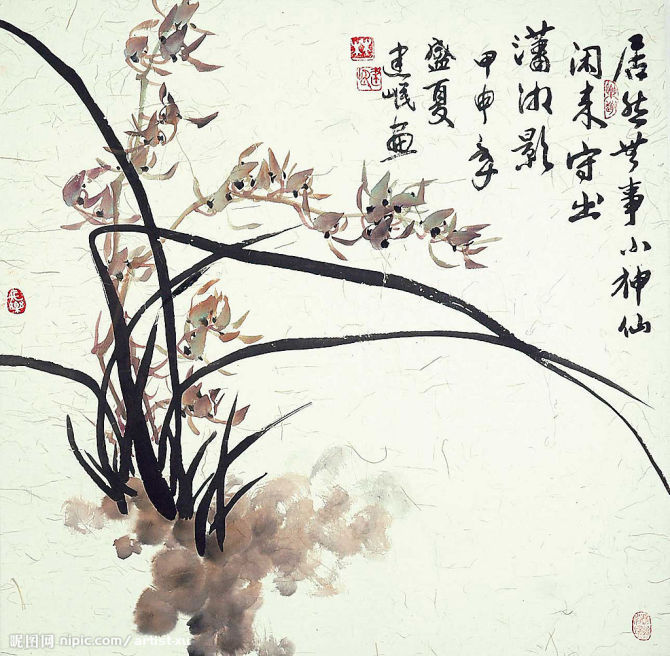 居然無事小神仙
闲来写出
瀟湘影
甲申年
盛夏
建岷畫
昵图网 nipic.com/artist-xu